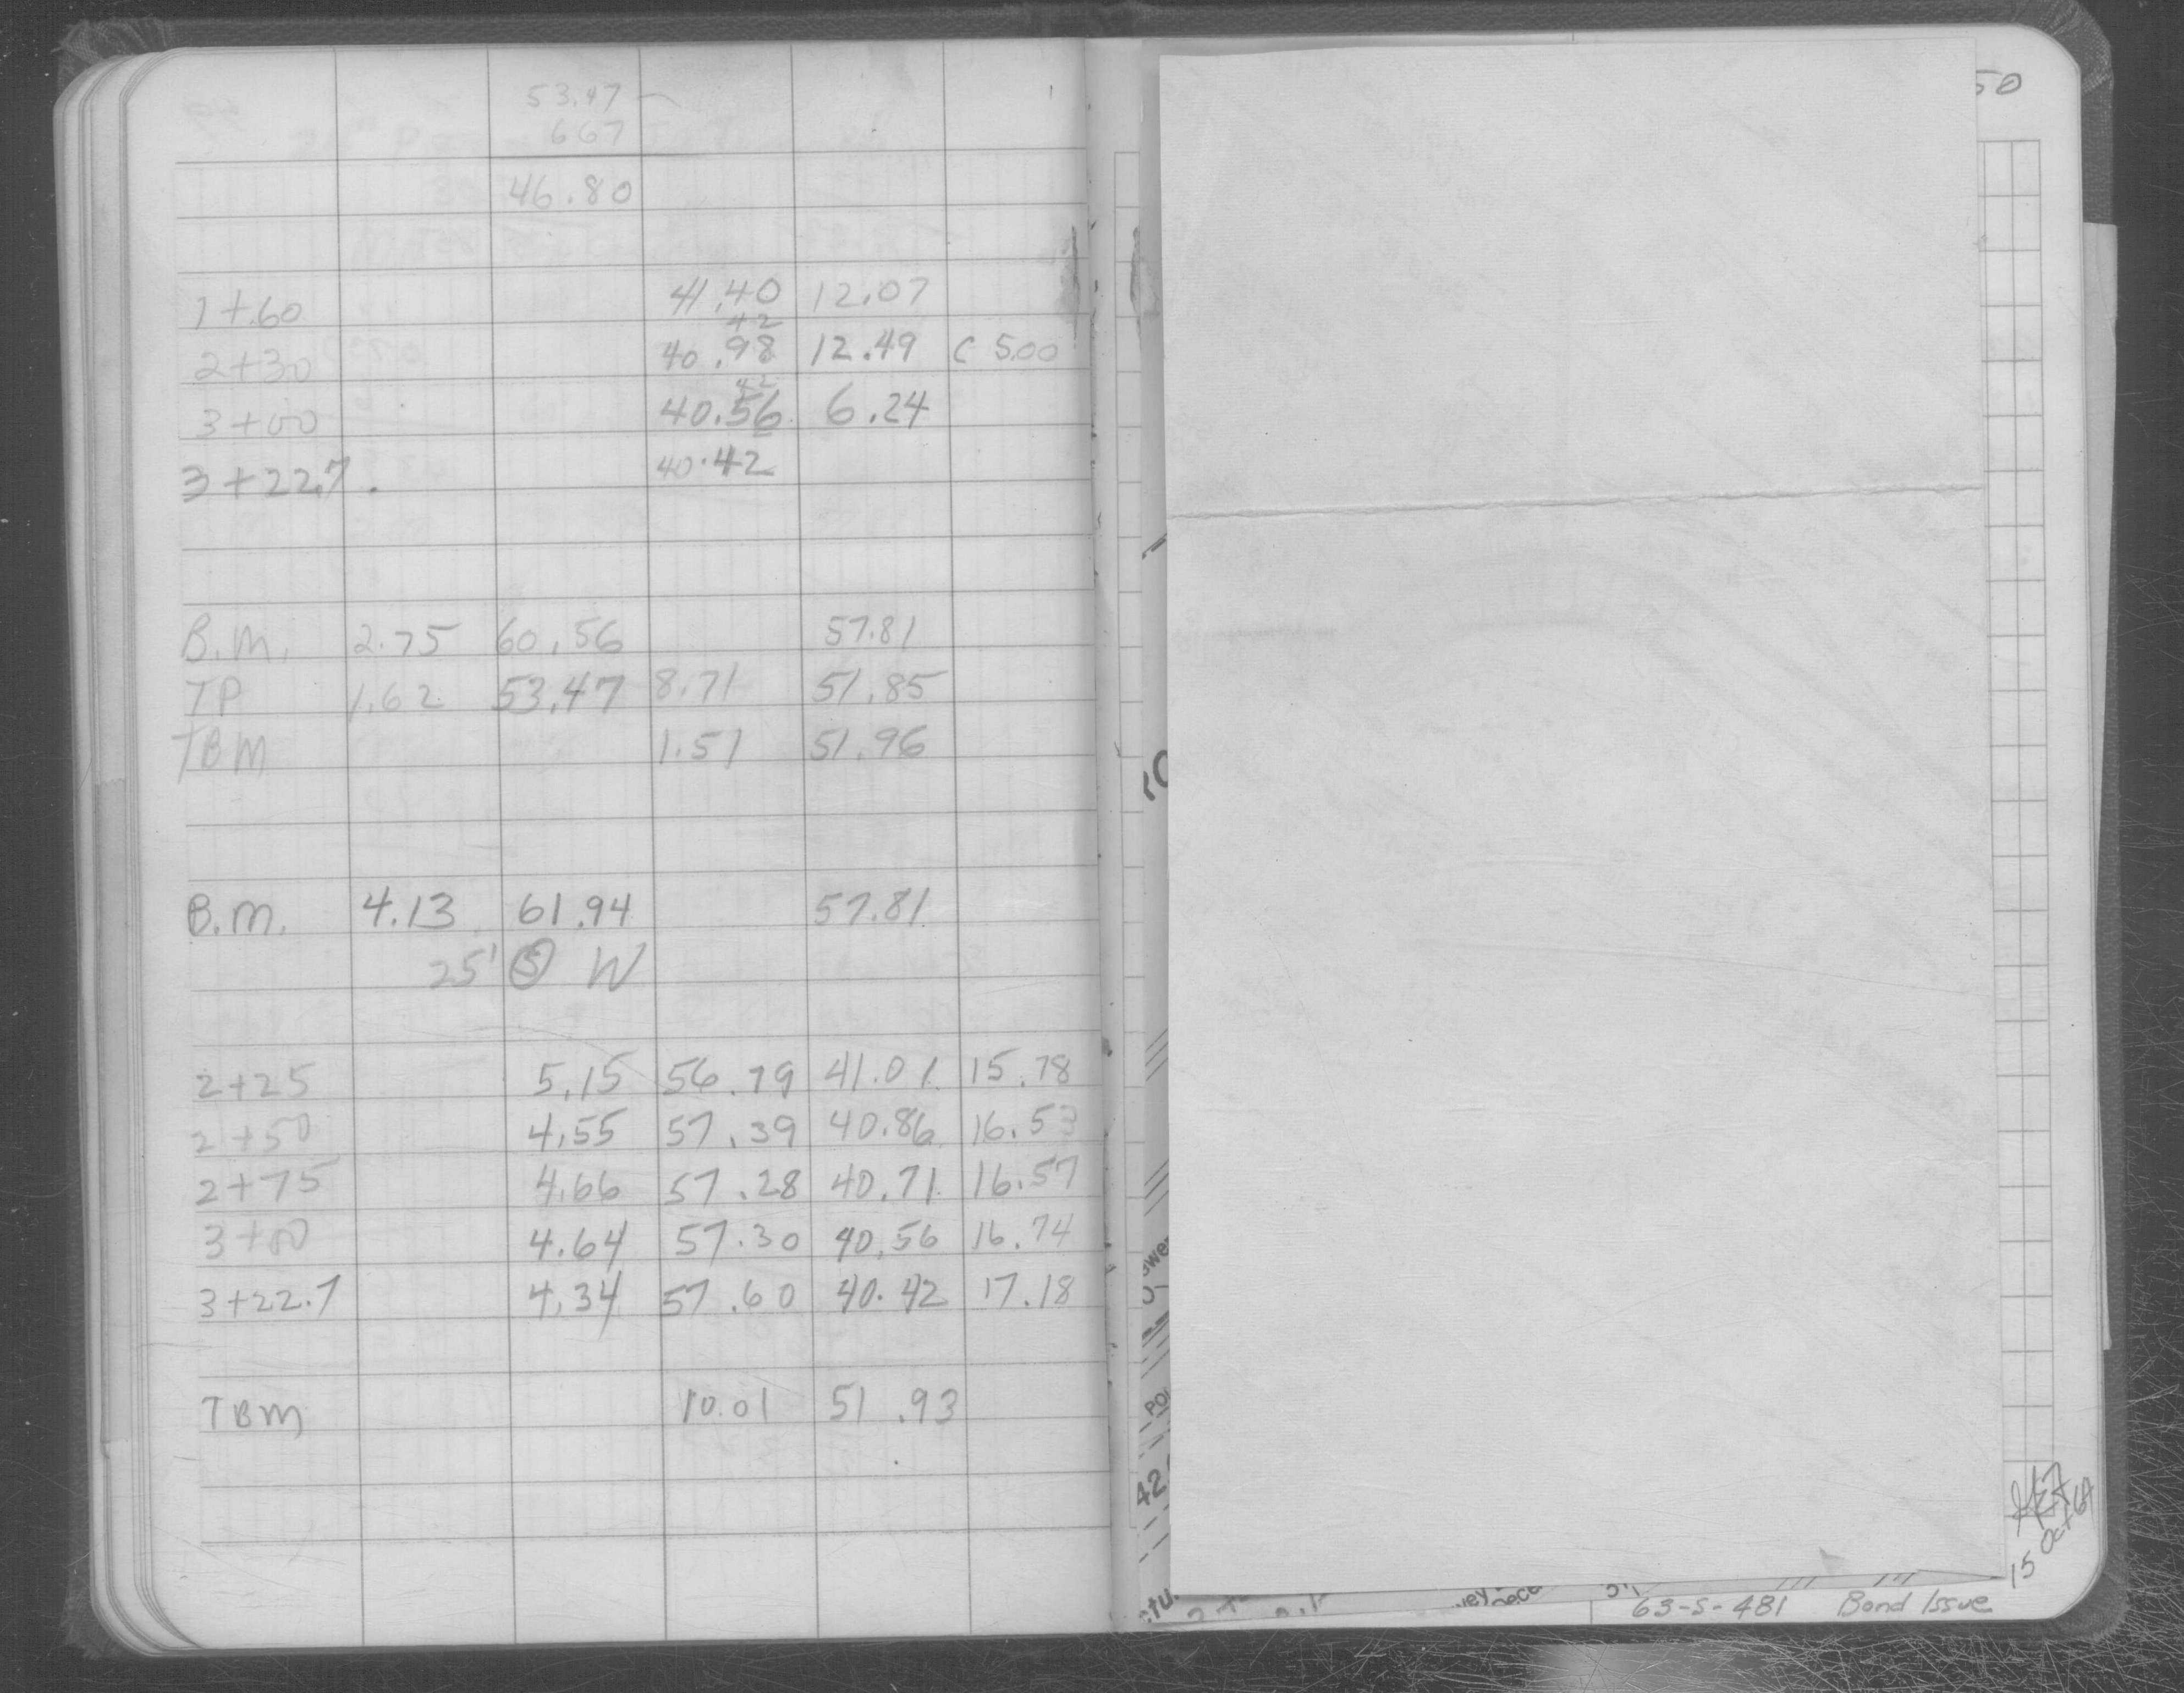 53.47
6 67
46.80
1+60 41.40 12.07
42
2+30 40.98 12.49 C 5.00
42
3+00 40.56 6.24
3+22.7 40.42
B.M. 2.75 60.56 57.81
TP 1.62 53.47 8.71 51.85
TBM 1.51 51.96
B.M. 4.13 61.94 57.81
25' S W
2+25 5.15 56.79 41.01 15.78
2+50 4.55 57.39 40.86 16.53
2+75 4.66 57.28 40.71 16.57
3+00 4.64 57.30 40.56 16.74
3+22.7 4.34 57.60 40.42 17.18
TBM 10.01 51.93
50
42
15 Oct 64
63-S-481 Bond Issue